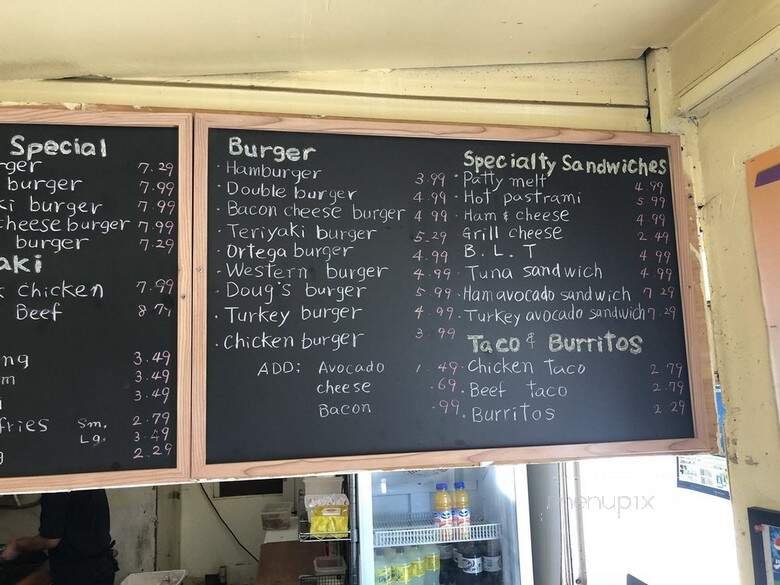 Special
rger 7.29
burger 7.99
ki burger 7.99
cheese burger 7.99
burger 7.29
aki
Chicken 7.99
Beef
ng 3.49
m 3.49
3.49
fries Sm. 2.79
Lg. 3.49
g 2.29
Burger
· Hamburger 3.99
· Double burger 4.99
· Bacon cheese burger 4.99
· Teriyaki burger 5.29
Ortega burger 4.99
· Western burger 4.99
· Doug's burger 5.99
· Turkey burger 4.99
· Chicken burger 3.99
ADD: Avocado 1.49
cheese .69
Bacon .99
Specialty Sandwiches
· Patty melt 4.99
· Hot pastrami 5.99
· Ham & cheese 4.99
Grill cheese 2.49
B. L. T 4.99
· Tuna sandwich 4.99
· Ham avocado sandwich 7.29
· Turkey avocado sandwich 7.29
Taco & Burritos
· Chicken taco 2.79
· Beef taco 2.79
· Burritos 2.29
menupix